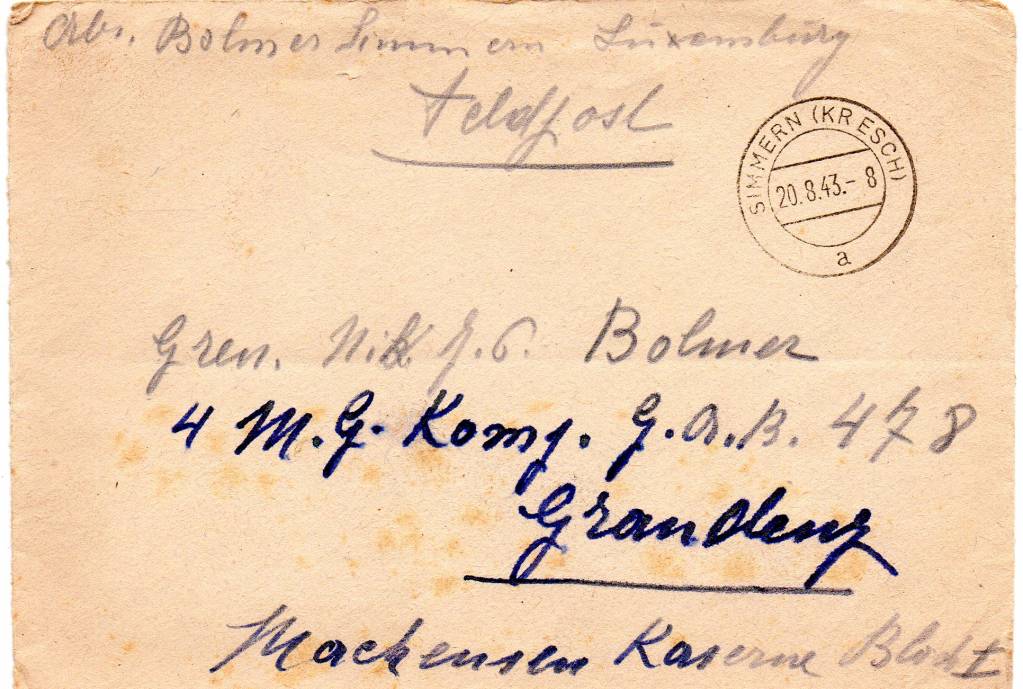 Abs. Bolmer Simmern Luxemburg
Feldpost
SIMMERN (KR ESCH)
20.8.43.- 8
a
Gren. Nik. J. C. Bolmer
4 M.G. Komp. G.A.B. 478
Graudenz
Mackensen Kaserne Block I